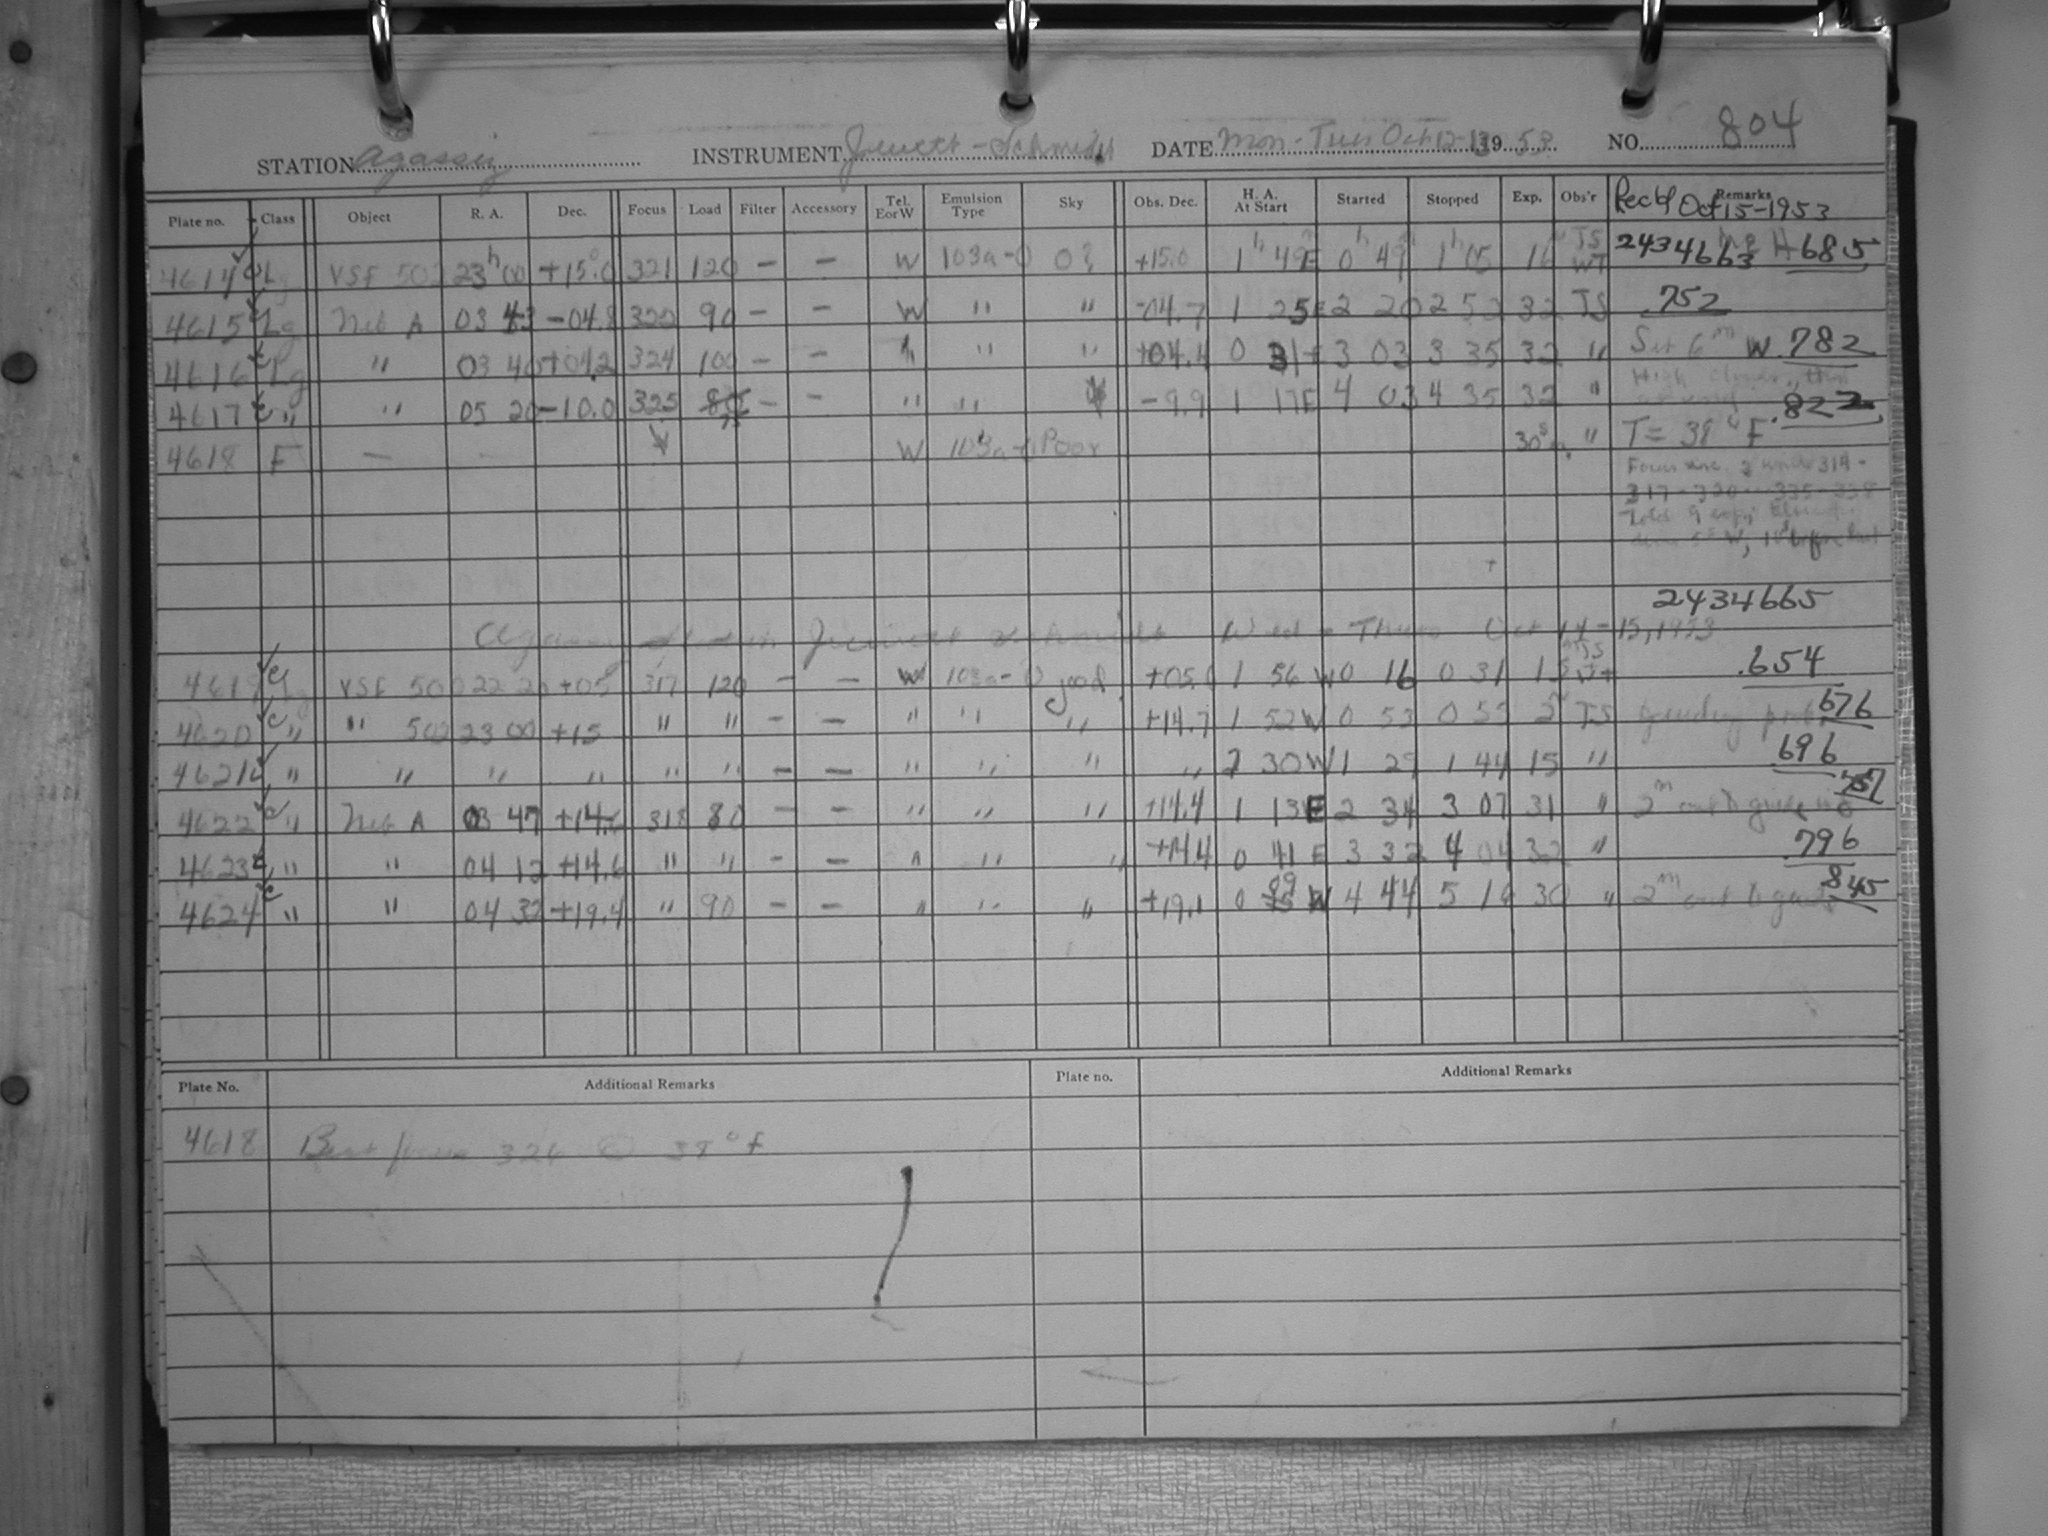 STATION Agassiz INSTRUMENT Jewett-Schmidt DATE Mon-Tues Oct 12-13 1953 NO. 804
Plate no. Class Object R. A. Dec. Focus Load Filter Accessory Tel. E or W Emulsion Type Sky Obs. Dec. H. A. At Start Started Stopped Exp. Obs'r Remarks
Rec'd Oct 15-1953
4614 Lg VSF 502 23h 00 +15°.0 321 120 - - W 103a-O +15.0 1h 49E 0h 49 1h 05 16 JS WT 2434663 .685
4615 Lg Neb A 03 43 -04.8 322 90 - - W " " -04.7 1 25E 2 20 2 52 32 JS .752
4616 Lg " 03 40 +04.2 324 100 - - " " " +04.4 0 31E 3 03 3 35 32 " Set 6m W .782
4617 " " 05 20 -10.0 325 - - " " -9.9 1 17E 4 03 4 35 32 " High .822
4618 F - W 103a-O Poor 30s " T = 38°F
317-320 335-338
2434665
Agassiz Station Jewett Schmidt Wed - Thurs Oct 14-15, 1953
4619 Lg VSF 500 22 20 +05 317 120 - - W 103a-O good +05. 1 56 W 0 16 0 31 15 JS .654
4620 " " 502 23 00 +15 " " - - " " " +14.7 1 52W 0 53 0 55 2 JS .676
4621 " " " " " " - - " " " " 2 30W 1 29 1 44 15 " .696
4622 " Neb A 03 47 +14.6 318 80 - - " " " +14.4 1 13E 2 34 3 07 31 " 2m out .757
4623 " " 04 12 +14.6 " " - - " " " +14.4 0 41 E 3 32 4 04 32 " .796
4624 " " 04 32 +19.4 " 90 - - " " " +19.1 0 09 W 4 44 5 16 30 " 2m out .845
Plate No. Additional Remarks Plate no. Additional Remarks
4618 Best focus 326 @ 38°F